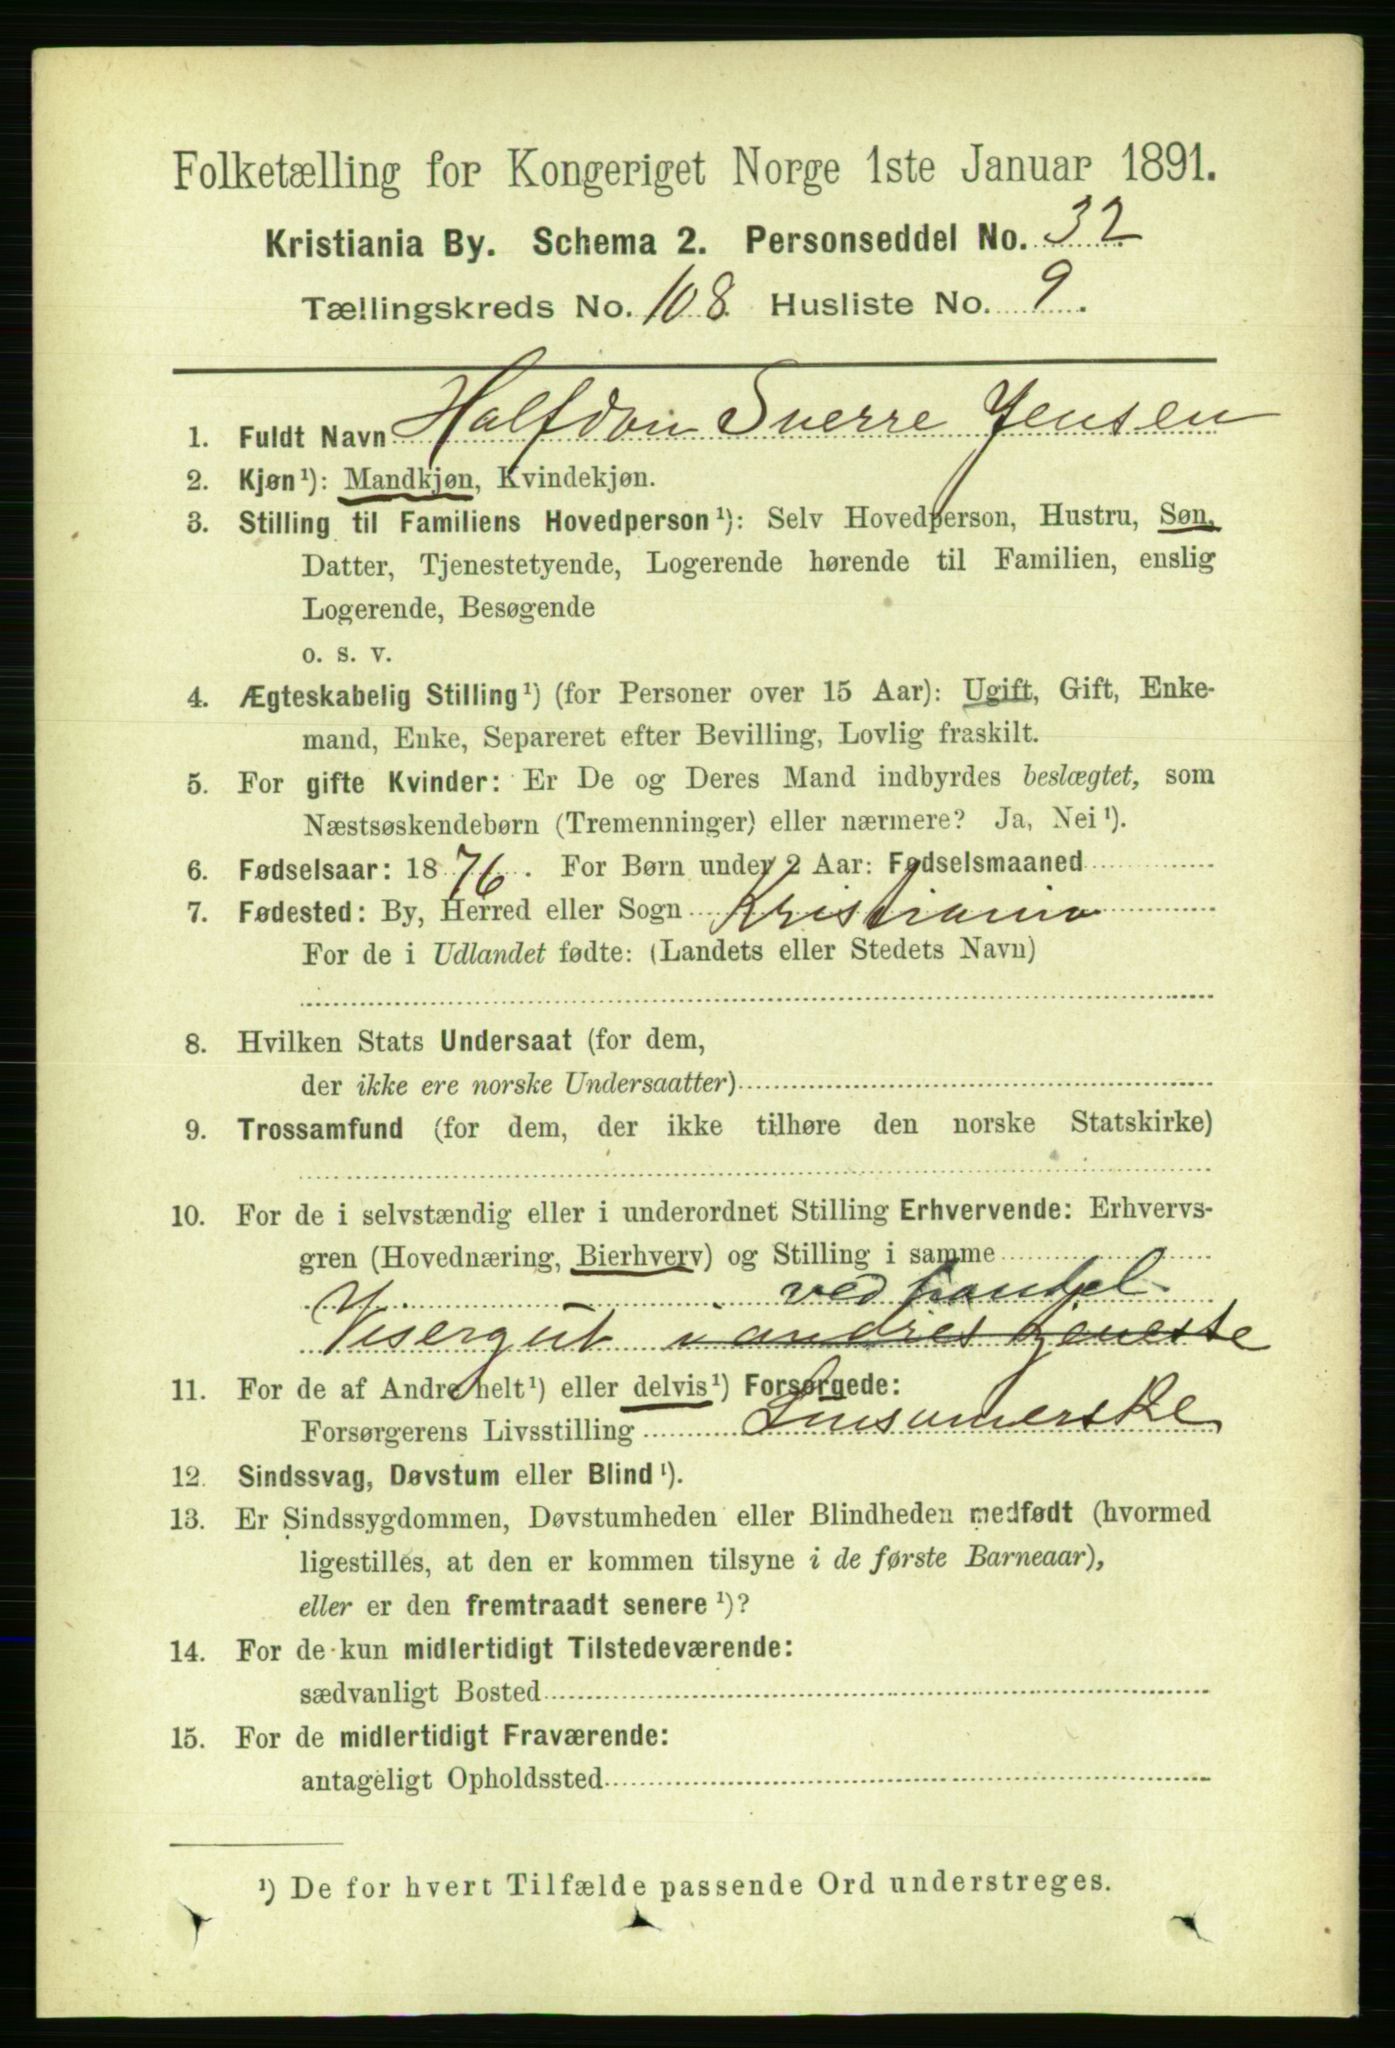 Folketælling for Kongeriget Norge 1ste Januar 1891.
Kristiania By. Schema 2. Personseddel No. 32
Tællingskreds No. 108. Husliste No. 9.
1. Fuldt Navn Halfdan Sverre Jensen
2. Kjøn¹): Mandkjøn, Kvindekjøn.
3. Stilling til Familiens Hovedperson¹): Selv Hovedperson, Hustru, Søn,
Datter, Tjenestetyende, Logerende hørende til Familien, enslig
Logerende, Besøgende
o. s. v.
4. Ægteskabelig Stilling¹) (for Personer over 15 Aar): Ugift, Gift, Enke-
mand, Enke, Separeret efter Bevilling, Lovlig fraskilt.
5. For gifte Kvinder: Er De og Deres Mand indbyrdes beslægtet, som
Næstsøskendebørn (Tremenninger) eller nærmere? Ja, Nei¹).
6. Fødselsaar: 1876. For Børn under 2 Aar: Fødselsmaaned
7. Fødested: By, Herred eller Sogn Kristiania
For de i Udlandet fødte: (Landets eller Stedets Navn)
8. Hvilken Stats Undersaat (for dem,
der ikke ere norske Undersaatter)
9. Trossamfund (for dem, der ikke tilhøre den norske Statskirke)
10. For de i selvstændig eller i underordnet Stilling Erhvervende: Erhvervs-
gren (Hovednæring, Bierhverv) og Stilling i samme
ved handel
Visergut i andres tjeneste
11. For de af Andre helt¹) eller delvis¹) Forsørgede:
Forsørgerens Livsstilling Linsømerske
12. Sindssvag, Døvstum eller Blind¹).
13. Er Sindssygdommen, Døvstumheden eller Blindheden medfødt (hvormed
ligestilles, at den er kommen tilsyne i de første Barneaar),
eller er den fremtraadt senere¹)?
14. For de kun midlertidigt Tilstedeværende:
sædvanligt Bosted
15. For de midlertidigt Fraværende:
antageligt Opholdssted
¹) De for hvert Tilfælde passende Ord understreges.